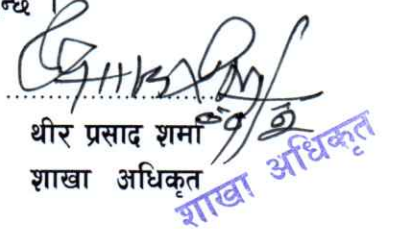 थीर प्रसाद शर्मा
शाखा अधिकृत
शाखा अधिकृत